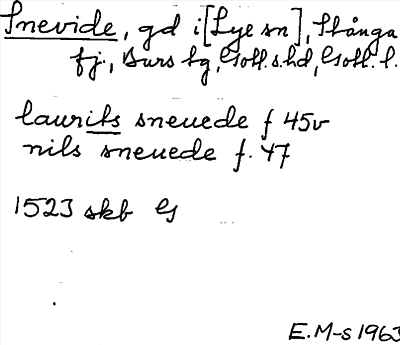 Snevide, gd i [Lye sn], Stånga
fj., Burs tg, Gotl. s. hd, Gotl. l.
laurits sneuede f 45v
nils sneuede f. 47
1523 skb G
E.M-s 1963